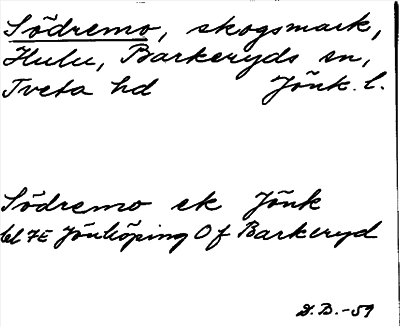 Södremo, skogsmark,
Hulu, Barkeryds sn,
Tveta hd Jönk. l.
Södremo ek Jönk
bl 7E Jönköping O f Barkeryd
D.B.-59